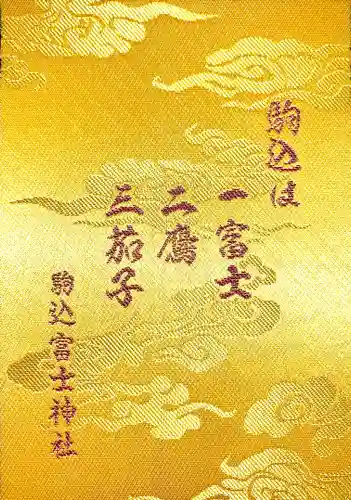 駒込は
一富士
二鷹
三茄子
駒込富士神社